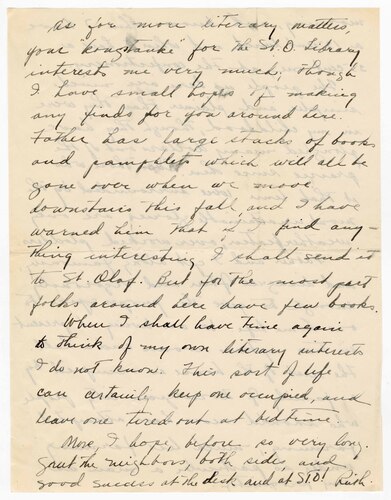 As for more literary matters,
your "             " for the St. O Library
interests me very much; though
I have small hopes of making
any finds for you around here.
Father has large stacks of books
and pamphlets which will all be
gone over when we move
downstairs this fall, and I have
warned him that if I find any-
thing interesting I shall send it
to St. Olaf. But for the most part
folks around here have few books.
When I shall have time again
to think of my own literary interests
I do not know. This sort of life
can certainly keep one occupied, and
leave one tired out at bedtime.
More, I hope, before so very long.
Greet the neighbors, both sides, and
good success at the desk and at S101 Ruth.